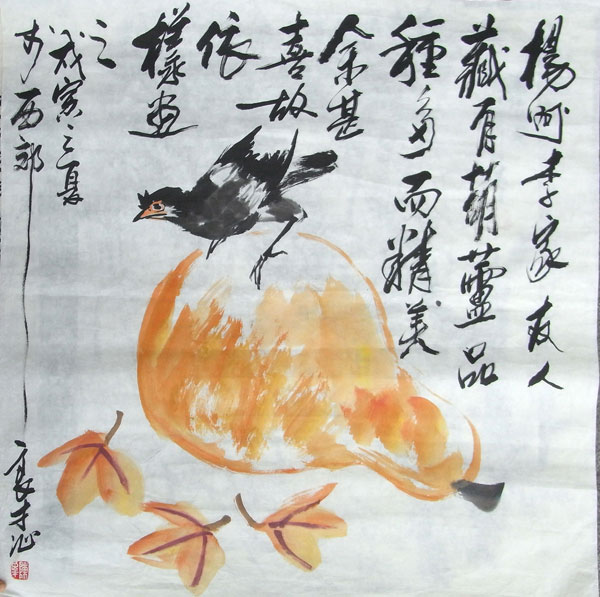 楊州李家友人
藏有葫蘆品
種多而精美
余甚
喜故
依
樣畫
之
戊寅之夏
於西郊